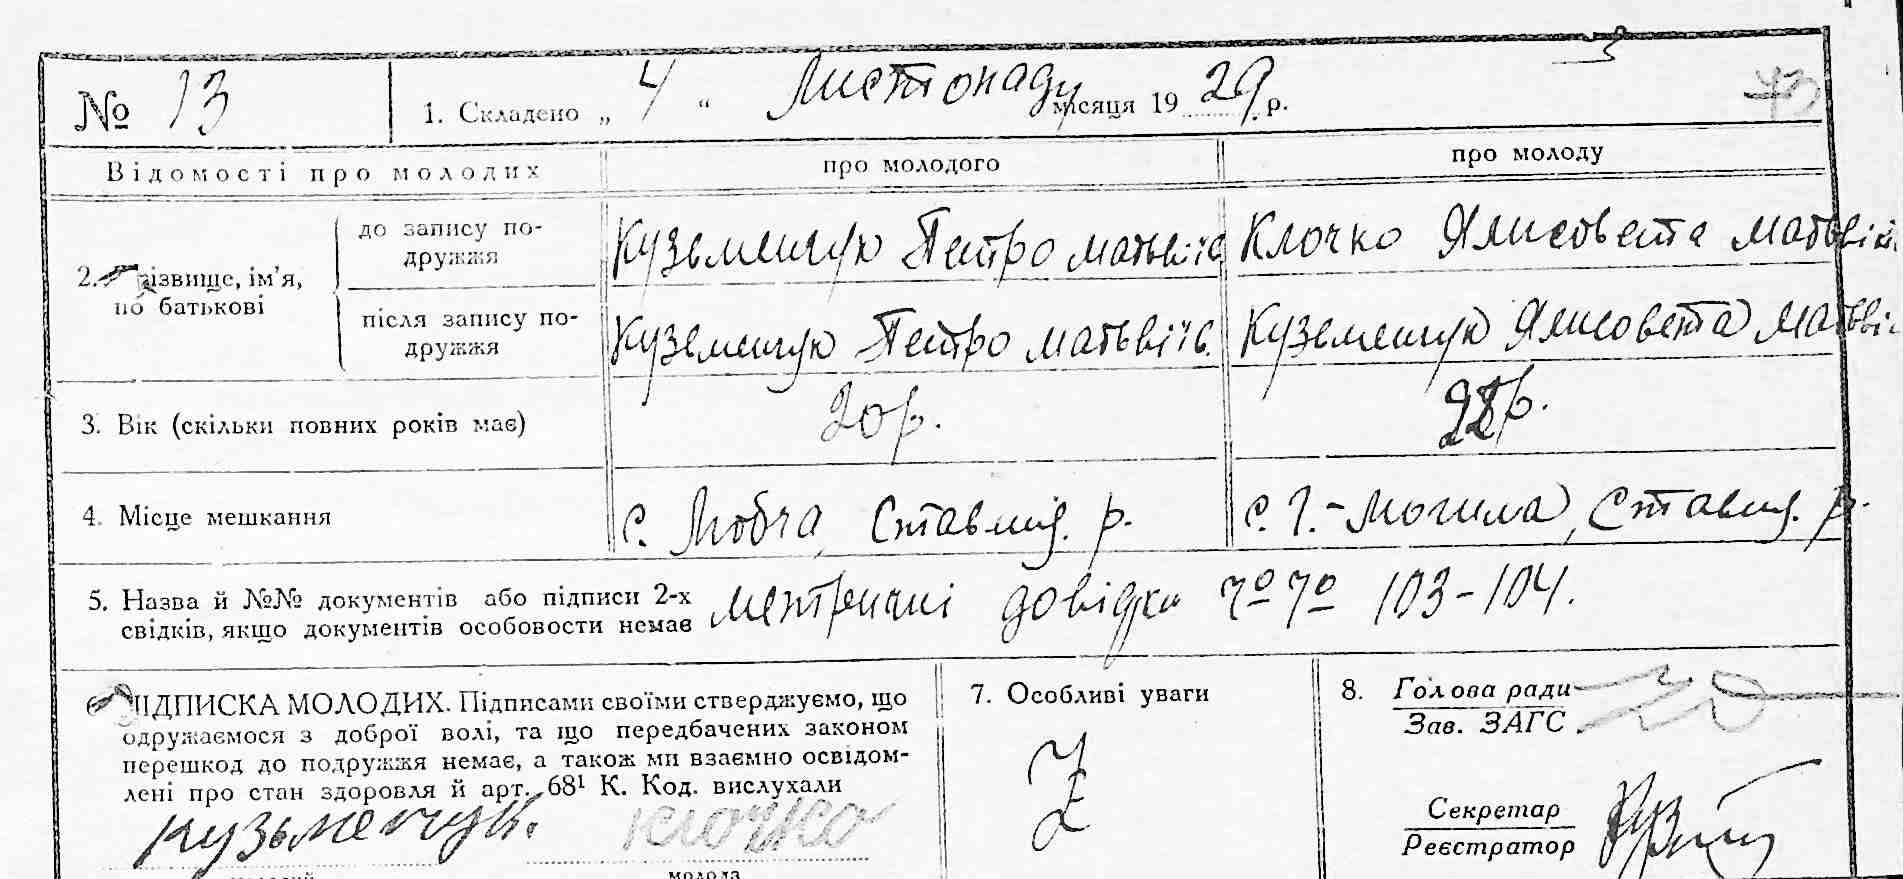 № 13
1. Складено „ 4 “ Листопаду місяця 19 29 р.
Відомості про молодих
про молодого
про молоду
2. Прізвище, ім’я,
по батькові
до запису по-
дружжя
Кузьменчук Петро Матьвіїв
Клочко Ялисовета Матьвії
після запису по-
дружжя
Куземенчук Петро Матьвіїв.
Куземенчук Ялисовета Матьвії
3. Вік (скільки повних років має)
20 р.
р.
4. Місце мешкання
с. Любча, Ставищ. р.
с. Г.-Могила, Ставищ. р.
5. Назва й №№ документів або підписи 2-х
свідків, якщо документів особовости немає
метричні довідки № № 103-104.
ПІДПИСКА МОЛОДИХ. Підписами своїми стверджуємо, що
одружаємося з доброї волі, та що передбачених законом
перешкод до подружжя немає, а також ми взаємно освідом-
лені про стан здоровля й арт. 68¹ К. Код. вислухали
Кузьменчук.
клочко
молода
7. Особливі уваги
8. Голова ради
Зав. ЗАГС
Секретар
Реєстратор